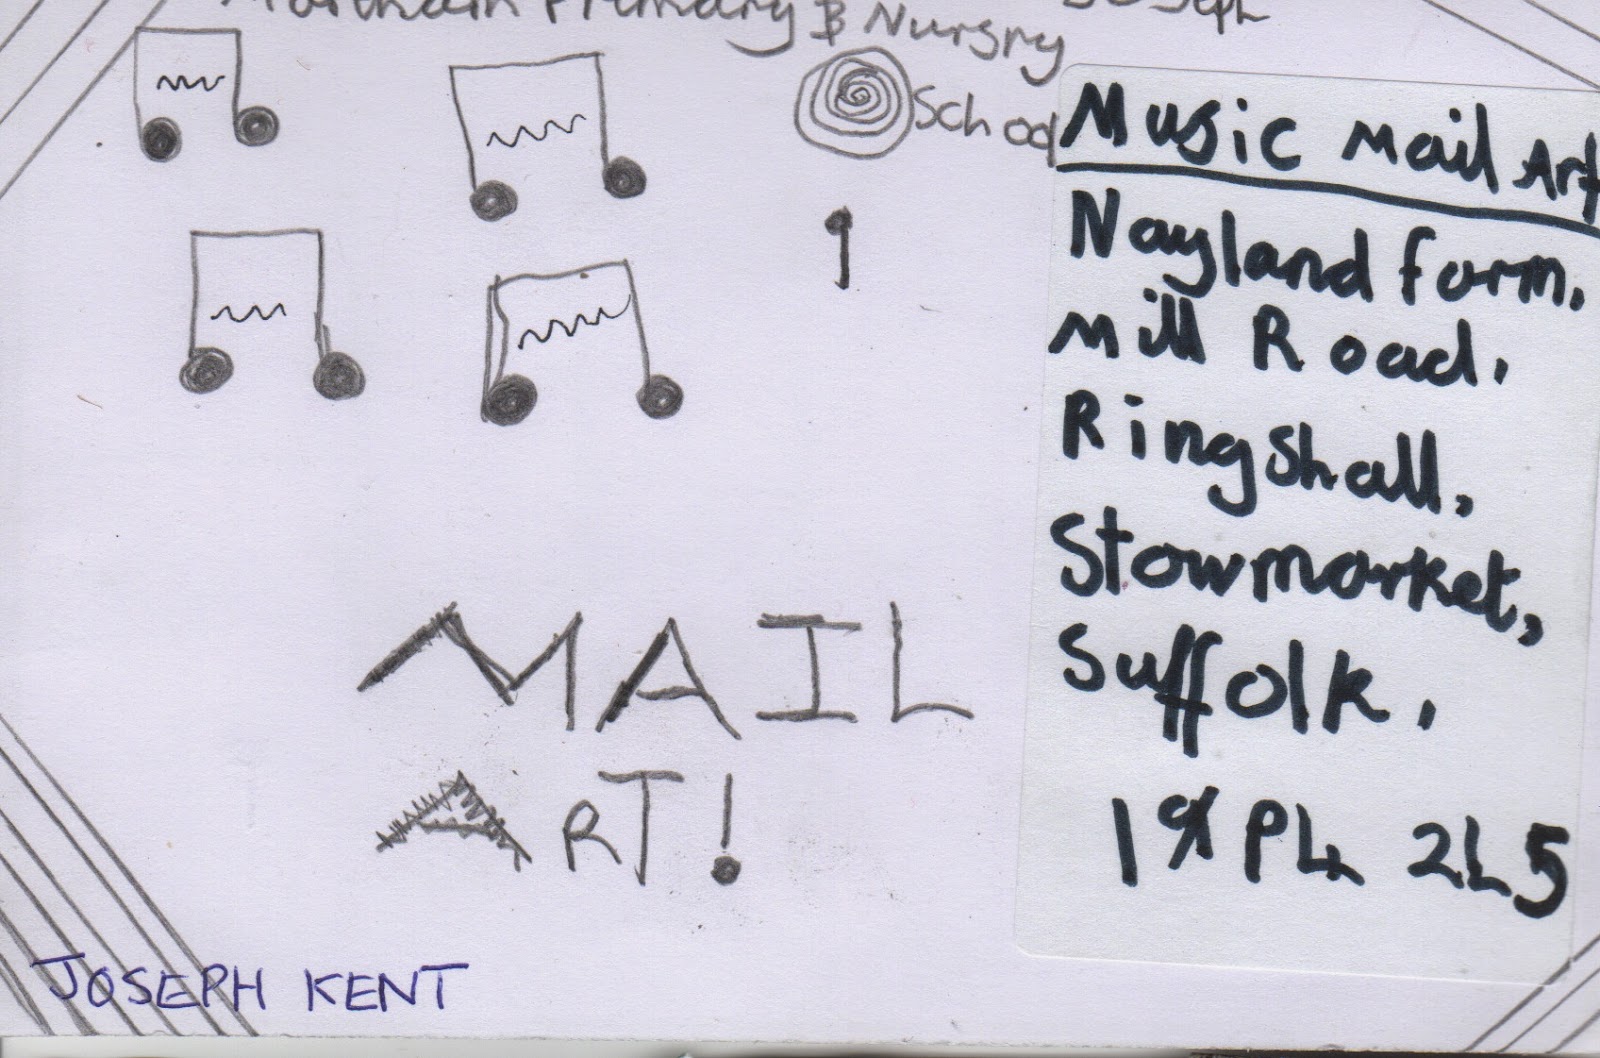 Primary & Nursry
Joseph
School
Music Mail Art
Nayland farm,
Mill Road,
Ringshall,
Stowmarket,
Suffolk.
PL4 2L5
MAIL
ART!
JOSEPH KENT